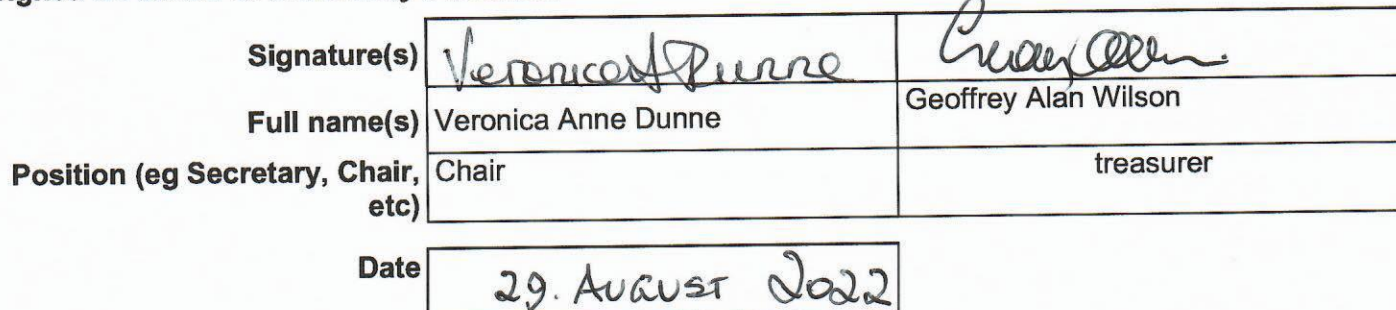 Signature(s) Veronica A Dunne
Full name(s) Veronica Anne Dunne Geoffrey Alan Wilson
Position (eg Secretary, Chair, etc) Chair treasurer
Date 29. AUGUST 2022